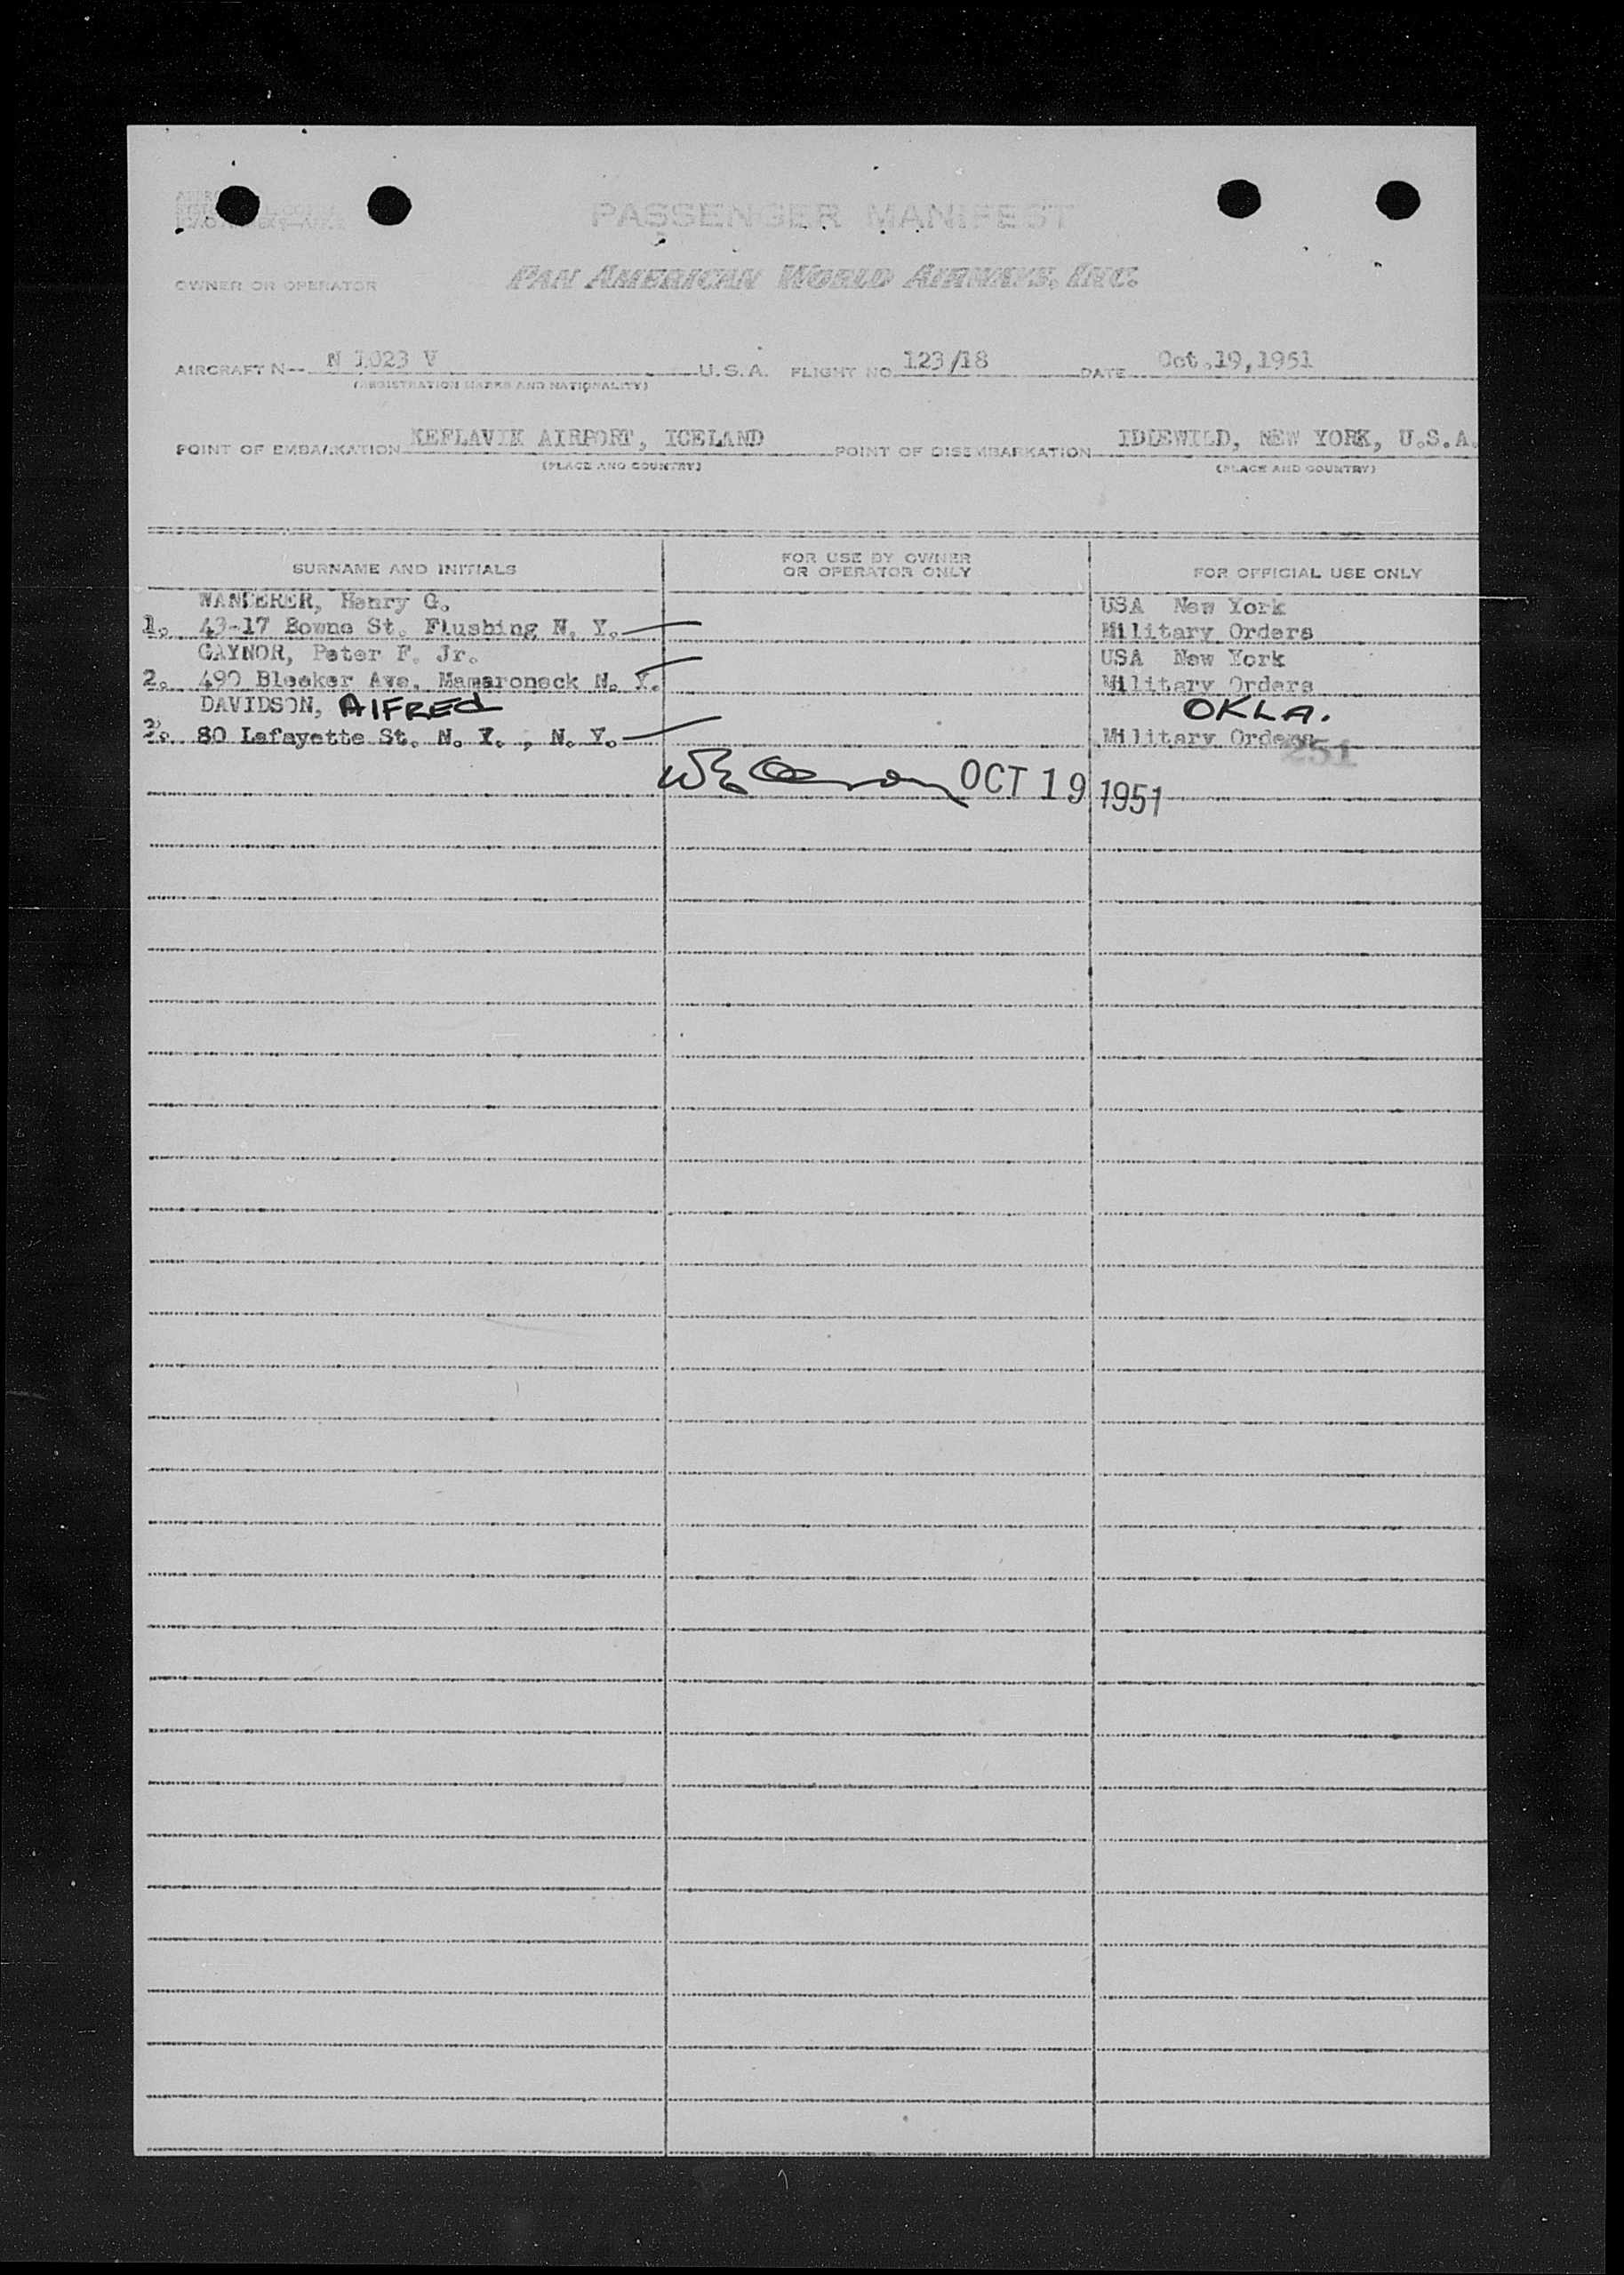 PASSENGER MANIFEST
OWNER OR OPERATOR PAN AMERICAN WORLD AIRWAYS, INC.
AIRCRAFT N-- N 1023 V U.S.A. FLIGHT NO. 123/18 DATE Oct.19,1951
(REGISTRATION MARKS AND NATIONALITY)
POINT OF EMBARKATION KEFLAVIK AIRPORT, ICELAND POINT OF DISEMBARKATION IDLEWILD, NEW YORK, U.S.A.
(PLACE AND COUNTRY) (PLACE AND COUNTRY)
SURNAME AND INITIALS FOR USE BY OWNER OR OPERATOR ONLY FOR OFFICIAL USE ONLY
WANDERER, Henry G. USA New York
1. 43-17 Bowne St. Flushing N. Y. Military Orders
GAYNOR, Peter F. Jr. USA New York
2. 490 Bleeker Ave. Mamaroneck N. Y. Military Orders
DAVIDSON, AlFREd OKLA.
3. 80 Lafayette St. N. Y. , N. Y. Military Orders
251
OCT 19 1951